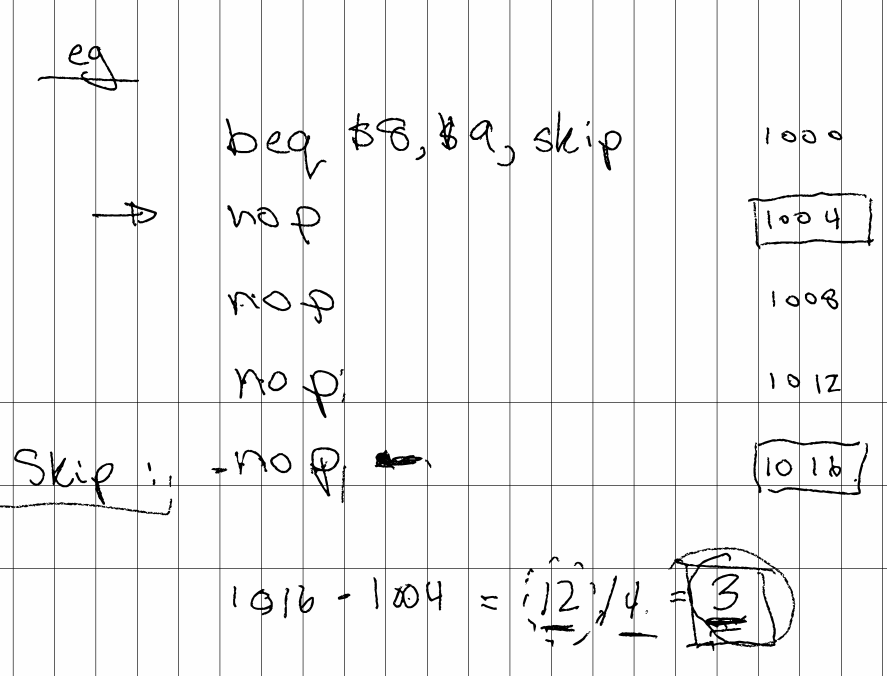 eg
beq $8, $9, skip 1000
→ nop 1004
nop 1008
nop 1012
Skip: nop 1016
1016 - 1004 = 12/4 = 3